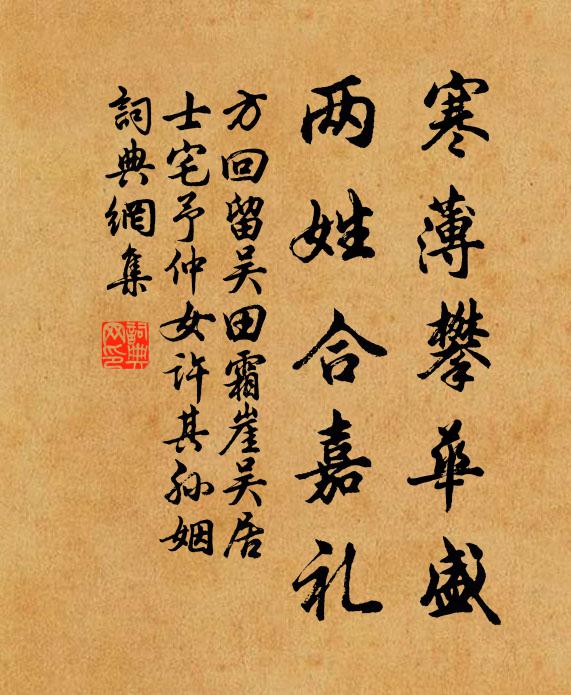 寒薄攀华盛
两姓合嘉礼
方回留吴田霜崖吴居
士宅予仲女许其孙姻
詞典網集
詞典
网印